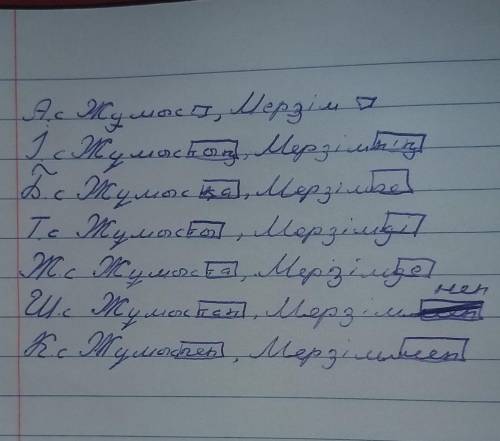 А.с Жумыс▭, Мерзім▭
І.с Жумыстың, Мерзімнің
Б.с Жумысқа, Мерзімге
Т.с Жумысты, Мерзімді
Ж.с Жумыста, Мерзімде
Ш.с Жумыстан, Мерзімнен
К.с Жумыспен, Мерзіммен